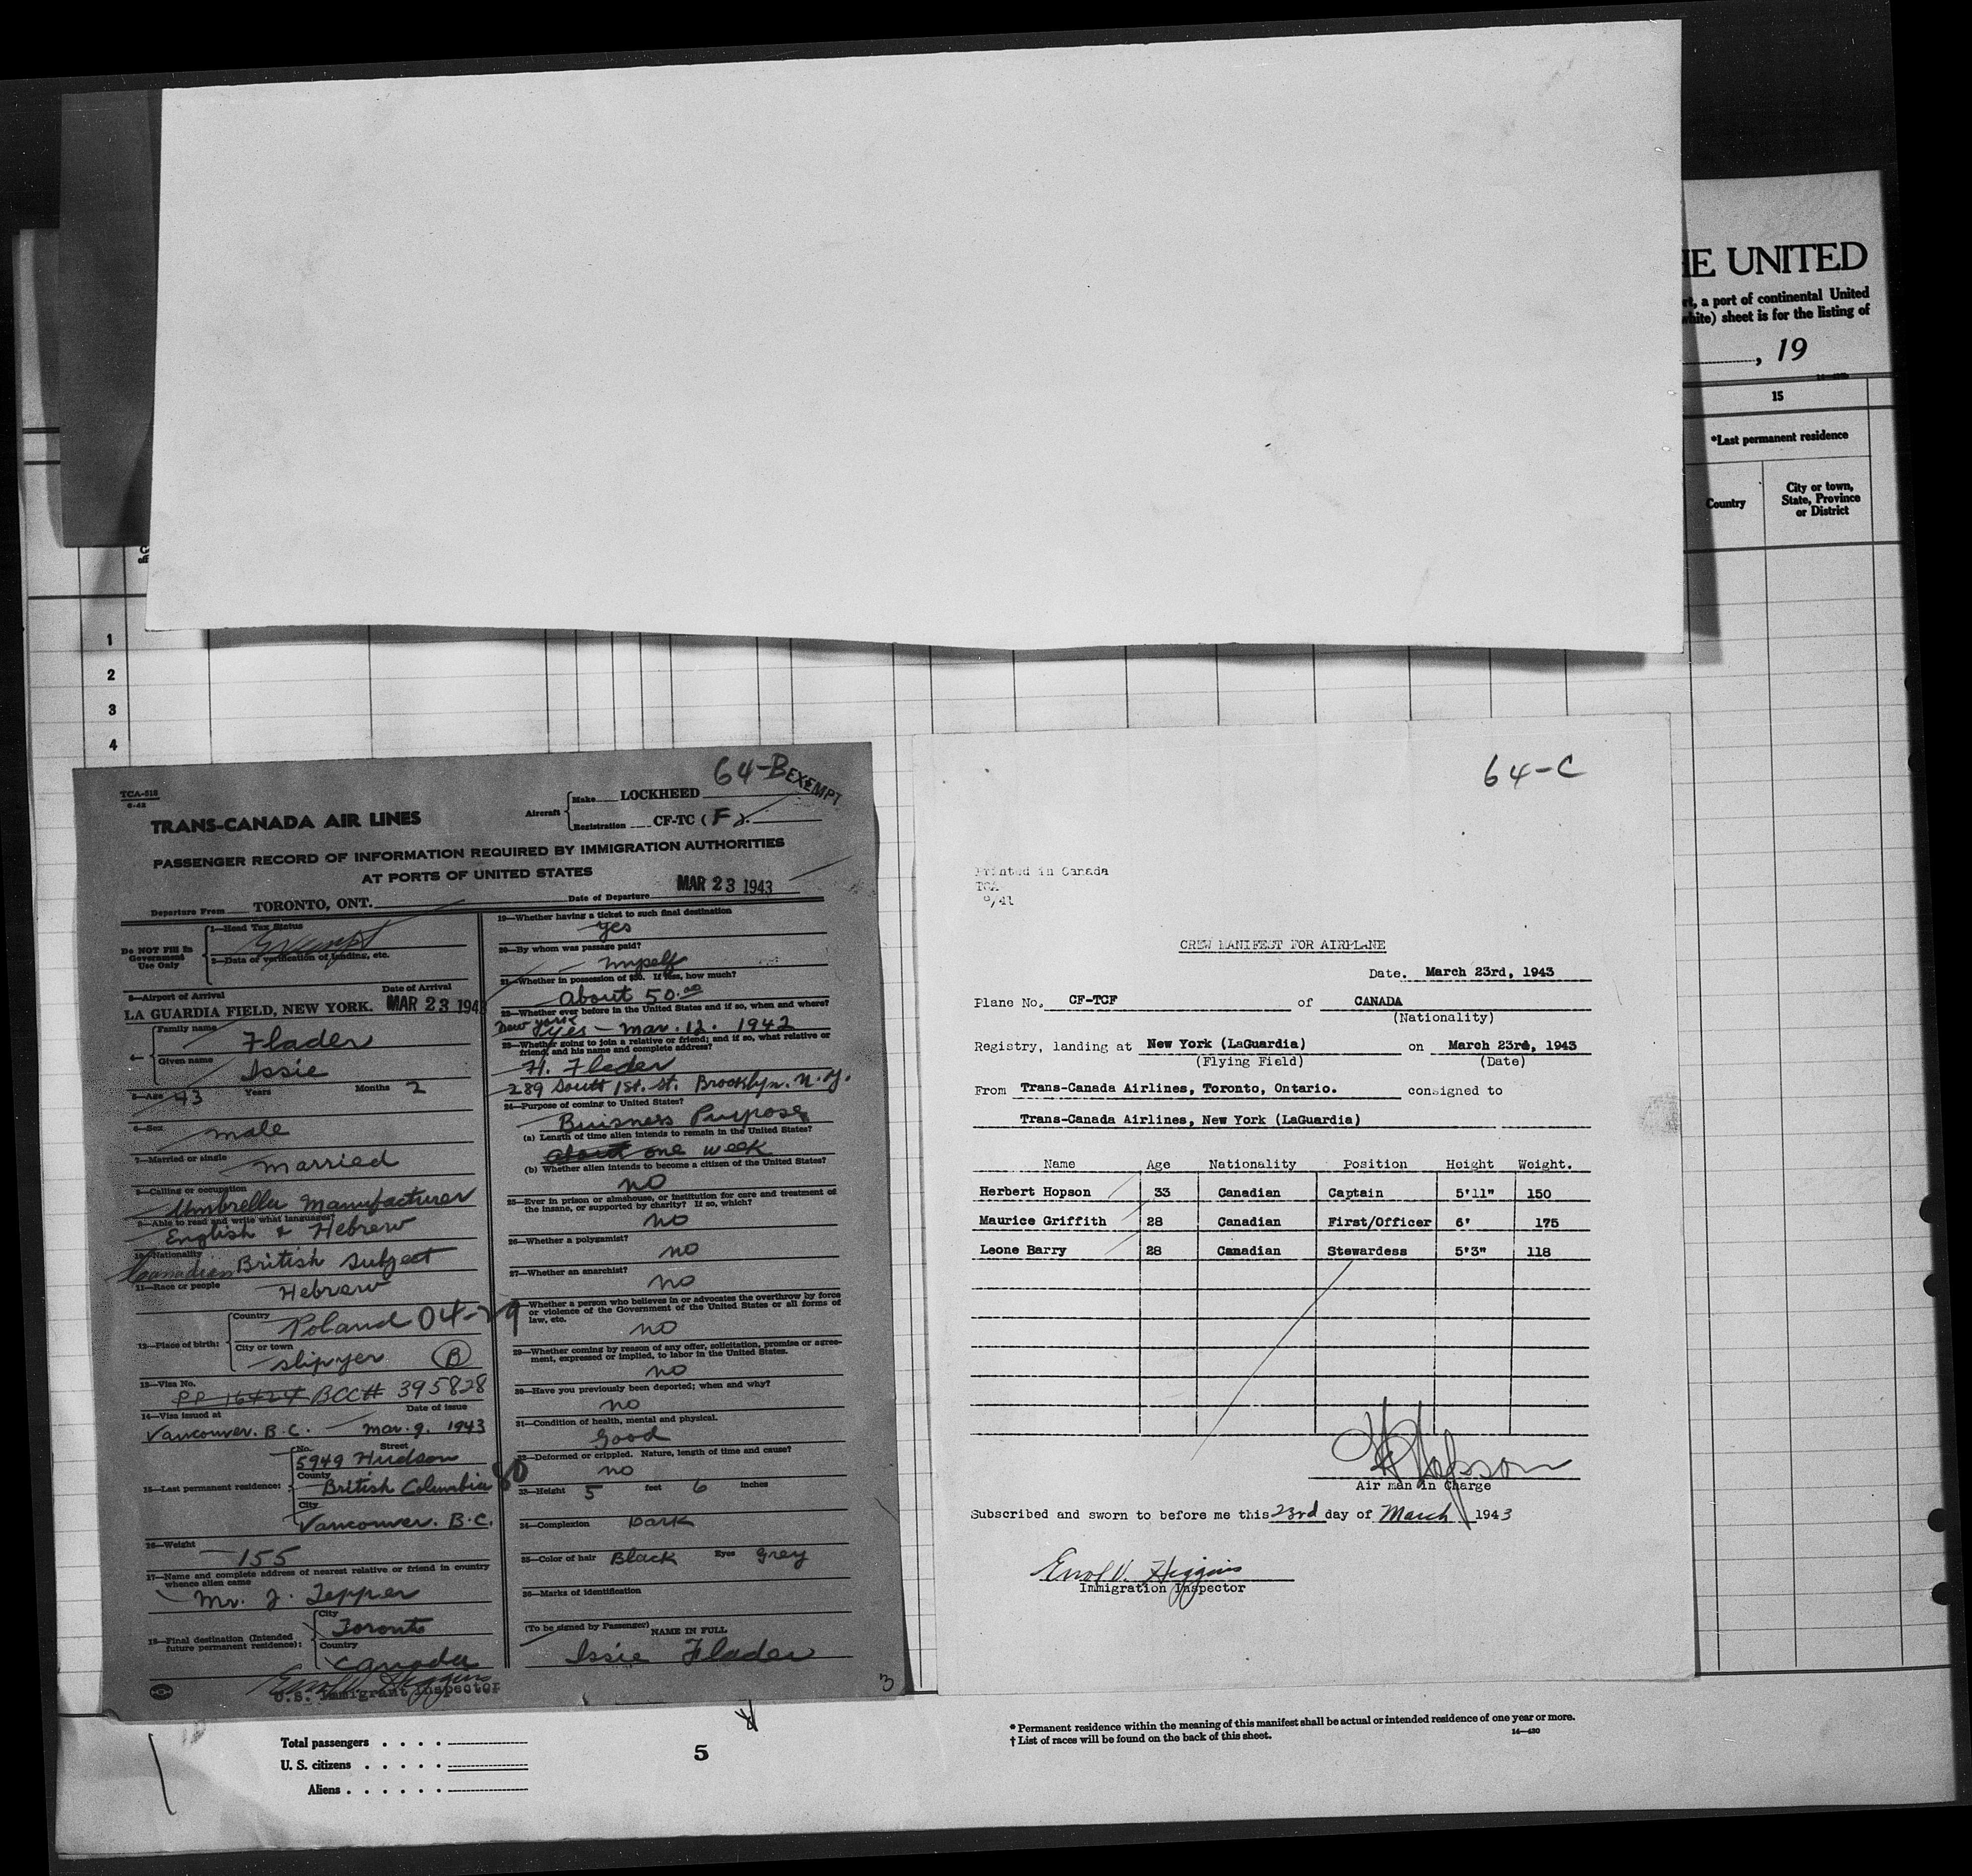 HE UNITED
rt, a port of continental United
white) sheet is for the listing of
, 19
15
*Last permanent residence
Country
City or town,
State, Province
or District
1
2
3
4
64-B EXEMPT
TCA-518
6-42
TRANS-CANADA AIR LINES
Aircraft
Make LOCKHEED
Registration CF-TC (F).
PASSENGER RECORD OF INFORMATION REQUIRED BY IMMIGRATION AUTHORITIES
AT PORTS OF UNITED STATES
Departure From TORONTO, ONT.
Date of Departure MAR 23 1943
Do NOT Fill In
Government
Use Only
1—Head Tax Status
Exempt
2—Data of verification of landing, etc.
3—Airport of Arrival
Date of Arrival
LA GUARDIA FIELD, NEW YORK. MAR 23 1943
4—
Family name
Flader
Given name
Issie
5—Age 43 Years Months 2
6—Sex
male
7—Married or single
married
8—Calling or occupation
Umbrella Manufacturer
9—Able to read and write what languages?
English & Hebrew
10—Nationality
Canadian British Subject
11—Race or people
Hebrew
12—Place of birth:
Country
Poland 04-29
City or town
Slipyer B
13—Visa No.
PP 16424 BCC# 395828
14—Visa issued at
Date of issue
Vancouver. B.C. — Mar. 9. 1943
15—Last permanent residence:
No. Street
5949 Hudson
County
British Columbia
City
Vancouver. B.C.
16—Weight
155
17—Name and complete address of nearest relative or friend in country
whence alien came
Mr. J. Tepper
18—Final destination (Intended
future permanent residence):
City
Toronto
Country
Canada
Errol V. Higgins
U.S. Immigrant Inspector
19—Whether having a ticket to such final destination
yes
20—By whom was passage paid?
myself
21—Whether in possession of $50. If less, how much?
about 50.00
22—Whether ever before in the United States and if so, when and where?
New York
Yes — Mar. 12. 1942
23—Whether going to join a relative or friend; and if so, what relative or
friend, and his name and complete address?
H. Flader
289 South 1st. St. Brooklyn. N.Y.
24—Purpose of coming to United States?
Buisness Purpose
(a) Length of time alien intends to remain in the United States?
about one week
(b) Whether alien intends to become a citizen of the United States?
no
25—Ever in prison or almshouse, or institution for care and treatment of
the insane, or supported by charity? If so, which?
no
26—Whether a polygamist?
no
27—Whether an anarchist?
no
Whether a person who believes in or advocates the overthrow by force
or violence of the Government of the United States or all forms of
law, etc.
no
29—Whether coming by reason of any offer, solicitation, promise or agree-
ment, expressed or implied, to labor in the United States.
no
30—Have you previously been deported; when and why?
no
31—Condition of health, mental and physical.
Good
32—Deformed or crippled. Nature, length of time and cause?
no
33—Height 5 feet 6 inches
34—Complexion Dark
35—Color of hair Black Eyes Grey
36—Marks of identification
(To be signed by Passenger) NAME IN FULL
Issie Flader
3
64-C
Printed in Canada
TCA
CREW MANIFEST FOR AIRPLANE
Date. March 23rd, 1943
Plane No. CF-TCF of CANADA
(Nationality)
Registry, landing at New York (LaGuardia) on March 23rd, 1943
(Flying Field) (Date)
From Trans-Canada Airlines, Toronto, Ontario. consigned to
Trans-Canada Airlines, New York (LaGuardia)
Name Age Nationality Position Height Weight.
Herbert Hopson 33 Canadian Captain 5'11" 150
Maurice Griffith 28 Canadian First/Officer 6' 175
Leone Barry 28 Canadian Stewardess 5'3" 118
H Hopson
Air man in Charge
Subscribed and sworn to before me this 23rd day of March 1943
Errol V. Higgins
Immigration Inspector
Total passengers . . . .
U. S. citizens . . . . .
Aliens . . . . . .
5
* Permanent residence within the meaning of this manifest shall be actual or intended residence of one year or more.
† List of races will be found on the back of this sheet.
14—430